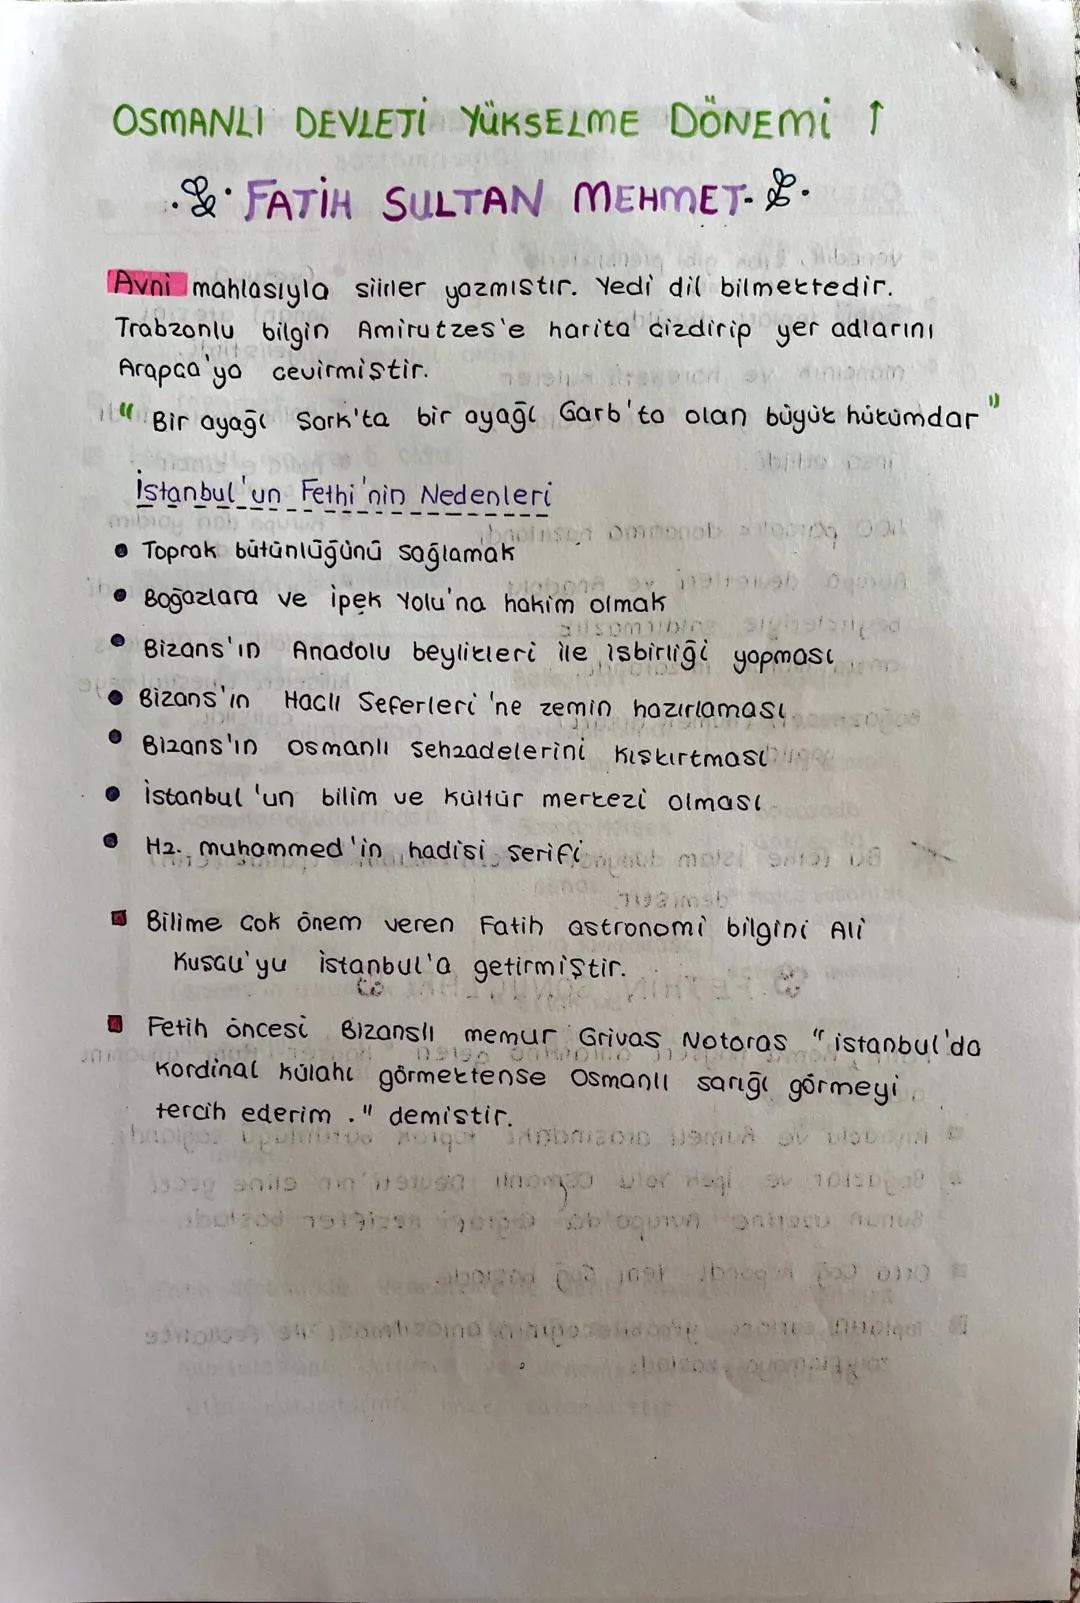 OSMANLI DEVLETİ YÜKSELME DÖNEMİ ↑
FATİH SULTAN MEHMET
Avni mahlasıyla siirler yazmıstır. Yedi dil bilmektedir.
Trabzonlu bilgin Amirutzes'e harita cizdirip yer adlarını
Arapca'ya cevirmiştir.
" Bir ayağı Sark'ta bir ayağı Garb'ta olan büyük hükümdar "
İstanbul'un Fethi'nin Nedenleri
• Toprak bütünlüğünü sağlamak
• Boğazlara ve İpek Yolu'na hakim olmak
• Bizans'ın Anadolu beylikleri ile isbirliği yapması
• Bizans'ın Haclı Seferleri'ne zemin hazırlaması
• Bizans'ın osmanlı sehzadelerini kışkırtması
• İstanbul'un bilim ve kültür merkezi olması
• Hz. muhammed'in hadisi serifi
Bilime cok önem veren Fatih astronomi bilgini Ali
Kuscu'yu istanbul'a getirmiştir.
Fetih öncesi Bizanslı memur Grivas Notaras "istanbul'da
Kardinal külahı görmektense Osmanlı sarığı görmeyi
tercih ederim ." demistir.